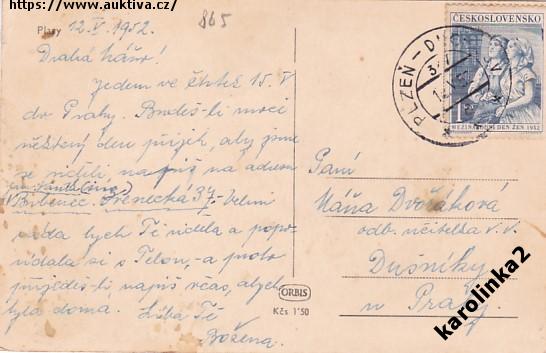 https://www.auktiva.cz/
865
Plasy 12.V.1952.
Drahá Máňo!
Jedem ve čtvrtek 15.V
do Prahy. Budeš-li moci
některý den přijít, aby jsme
se viděli, napiš na adresu
Bubeneč. 37. Velmi
ráda bych Tě viděla a popo-
vídala si s Tebou, - a proto
přijedeš-li, napiš včas, abych
byla doma. Líbá Tě
Božena.
ČESKOSLOVENSKO
PLZEŇ - D
MEZINÁRODNÍ DEN ŽEN 1952
Paní
Máňa Dvořáková
odb. učitelka v.v.
Dušníky
u Prahy.
ORBIS
Kčs 1·50
karolinka2